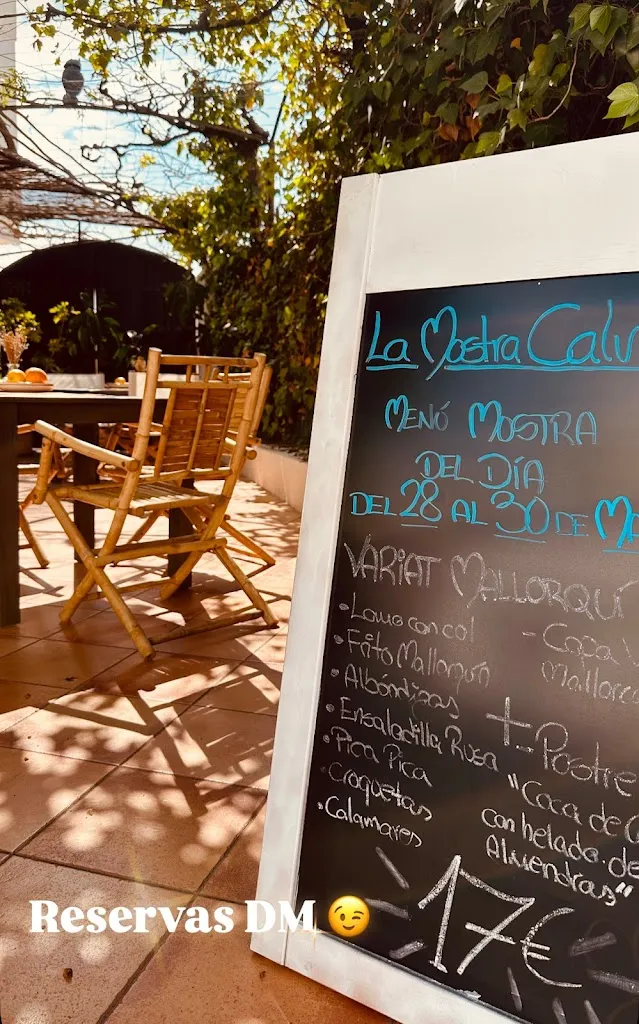 La Mostra Calv
MENÓ MOSTRA
DEL DÍA
DEL 28 AL 30 DE MA
VARIAT MALLORQUÍ
• Lomo con col
• Frito Mallorquín
• Albóndigas
• Ensaladilla Rusa
• Pica Pica
• Croquetas
• Calamares
- Copa
Mallorc
+ Postre
"Coca de
con helado de
Almendras"
17€
Reservas DM 😉